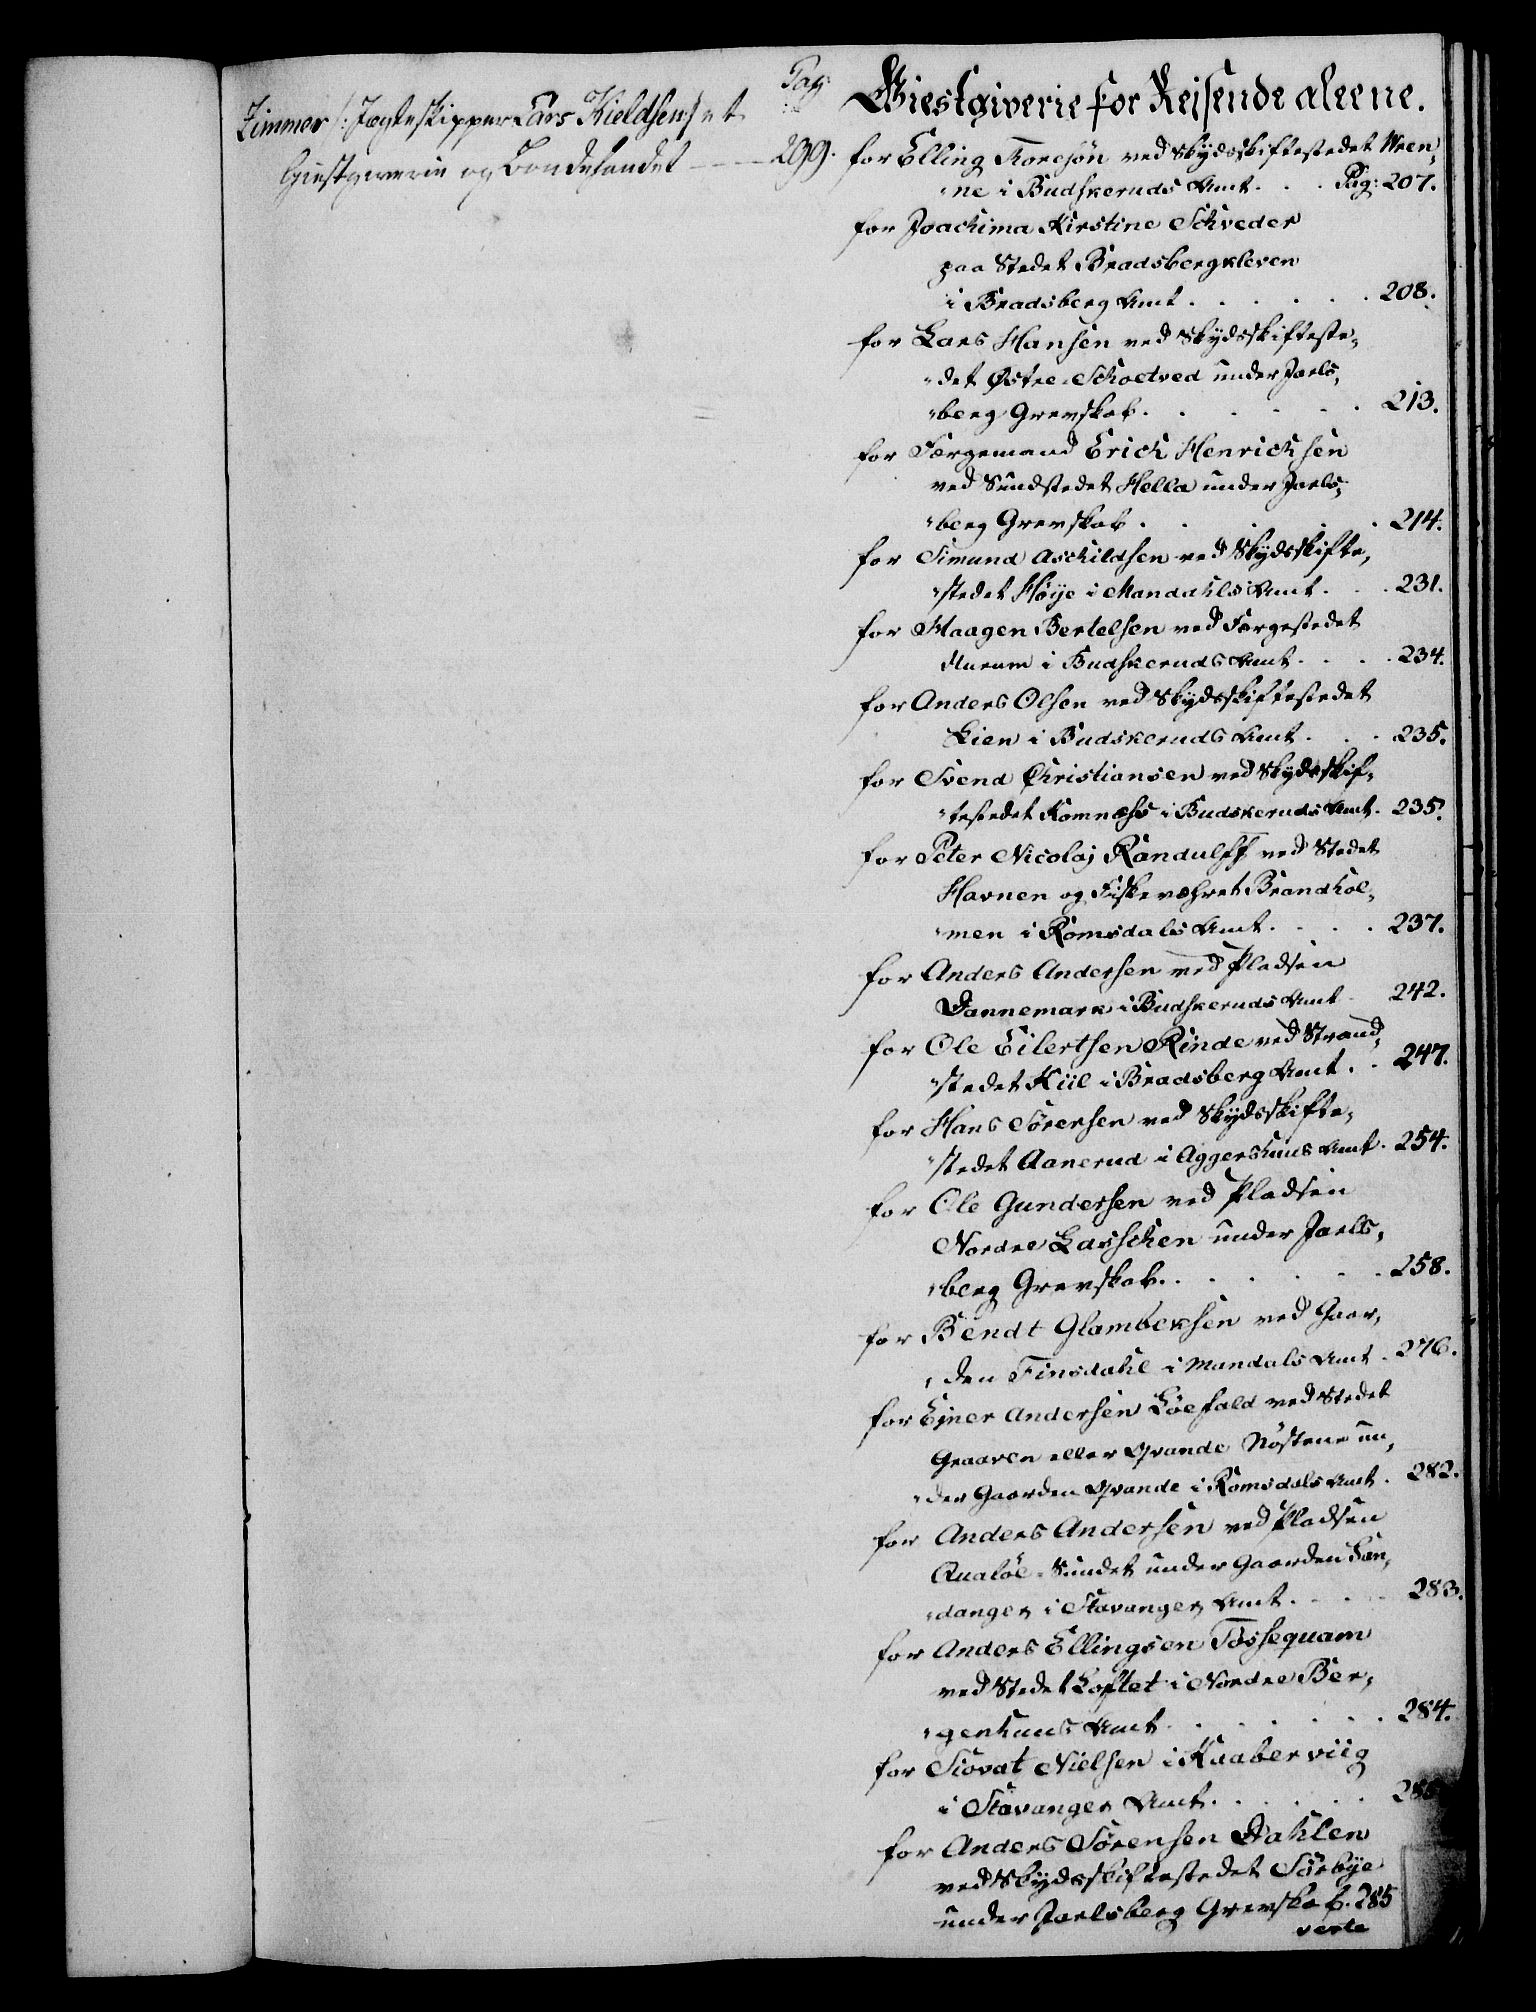 Pag:
Zimmer /: Jægteskipper Lars Kieldsen/ et
Giestgiverie og Bondehandel - - - 299.
Giestgiverie for Rejsende aleene.
for Elling Toresøn ved Skydsskiftestedet Ween,
"ne i Budskeruds Amt . . . Pag: 207.
for Joachima Kirstine Schveder
paa Stedet Bradsbergkleven
i Bradsberg Amt . . . . . . 208.
for Lars Hansen ved Skydsskifteste,
"det Østre Schoetved under Jarls,
"berg Grevskab . . . . . . 213.
for Færgemand Erich Henrichsen
ved Sundstedet Hella under Jarls,
"berg Grevskab . . . . . 214.
for Simund Aschildsen ved Skydsskifte,
"stedet Høye i Mandahls Amt . . . 231.
for Haagen Bertelsen ved Færgestedet
i Budskeruds Amt . . . . 234.
for Anders Olsen ved Skydsskiftestedet
Lien i Budskeruds Amt . . . 235.
for Svend Christiansen ved Skydsskif,
"testedet Komnæhs i Budskeruds Amt . 235.
for Peter Nicolaj Randulff ved Stedet
Havnen og Fiskeværet Brandhol,
"men i Romsdals Amt . . . . 237.
for Anders Andersen ved Pladsen
Dannemark i Budskeruds Amt 242.
for Ole Eilertsen Rinde ved Strand,
"stedet Kiil i Bradsberg Amt . . 247.
for Hans Sørensen ved Skydsskifte,
"stedet Aanerud i Aggershuus Amt . 254.
for Ole Gundersen ved Pladsen
Nordre Larschen under Jarls,
"berg Grevskab . . . . . . 258.
for Bendt Glambeksen ved Gaar,
"den Finsdahl i Mandals Amt . 276.
for Ejner Andersen Løefald ved Stedet
Graaven eller Qvande Nøstene un,
"der Gaarden Qvande i Romsdals Amt . 282.
for Anders Andersen ved Pladsen
Qualøe-Sundet under Gaarden Han,
"danger i Stavanger Amt . . . . 283.
for Anders Ellingsen Tossequam
ved Stedet Loftet i Nordre Ber,
"genhuus Amt . . . . . . 284.
for Siovat Nielsen i Kaaberviig
i Stavanger Amt . . . . .
for Anders Sørensen Dahlen
ved Skydsskiftestedet Sørbye
under Jarlsberg Grevskab . 285
verte